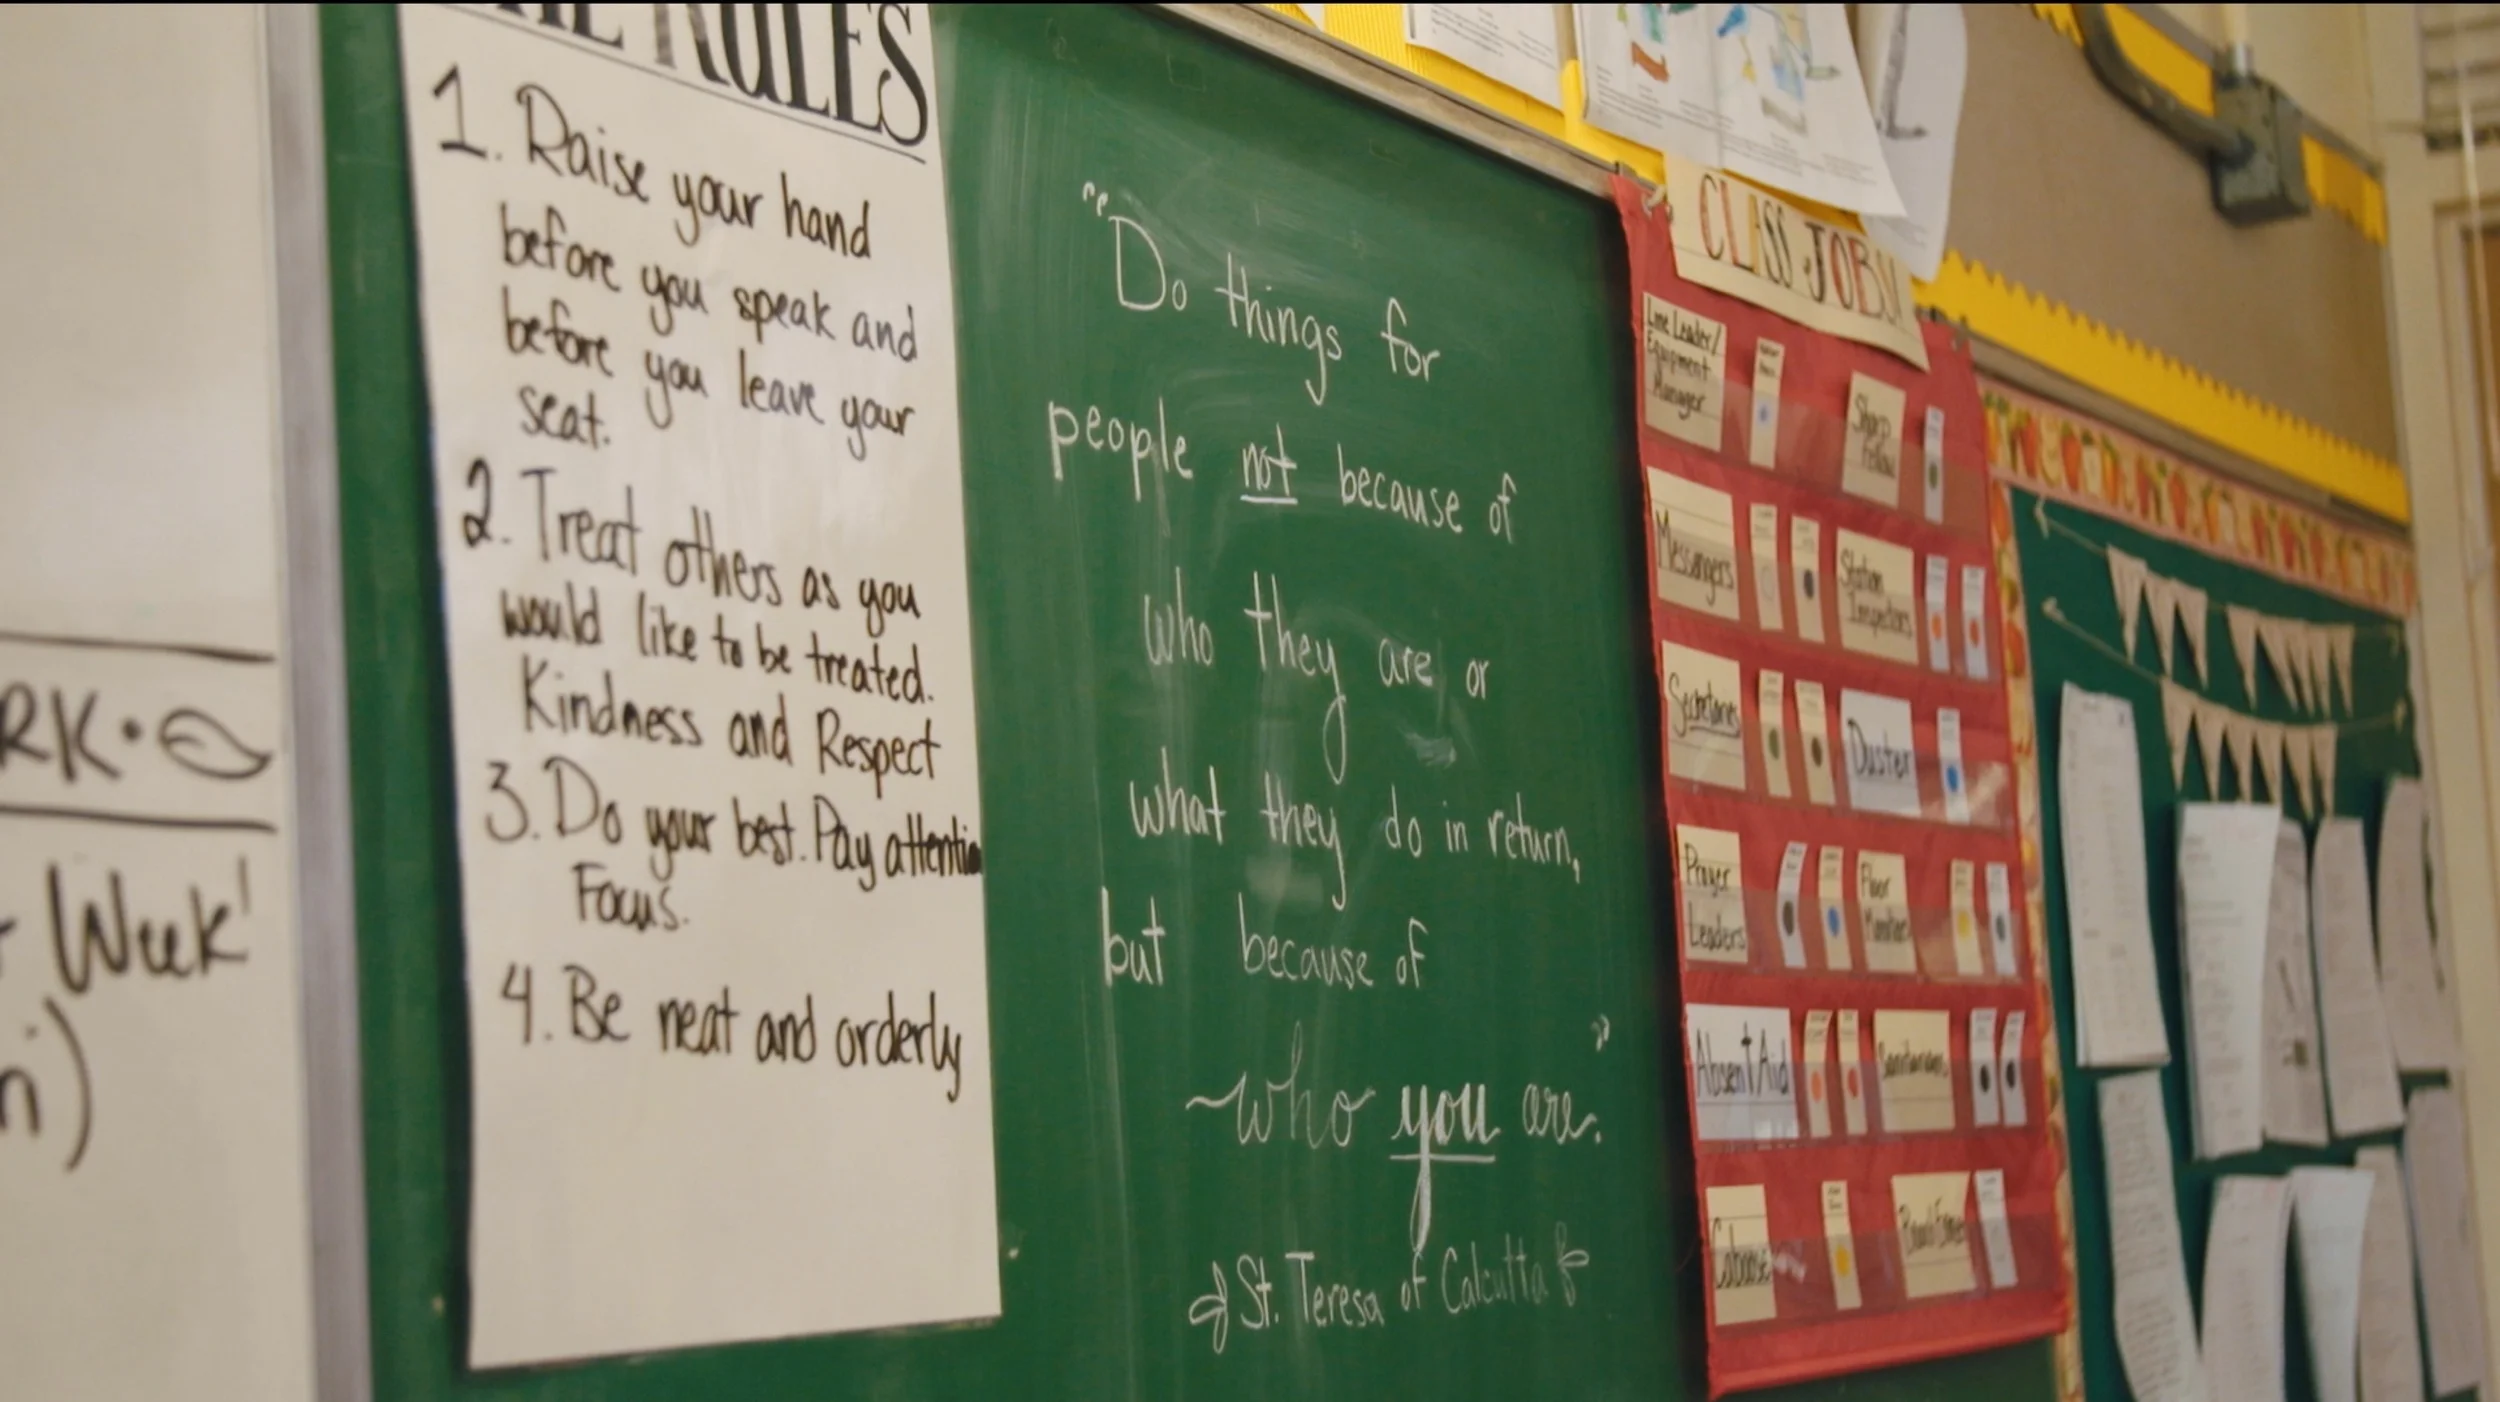 THE RULES
1. Raise your hand
before you speak and
before you leave your
seat.
2. Treat others as you
would like to be treated.
Kindness and Respect
3. Do your best. Pay attention
Focus.
4. Be neat and orderly
RK •
Week'
n)
"Do things for
people not because of
who they are or
what they do in return,
but because of
who you are."
St. Teresa of Calcutta
CLASS JOBS!
Line Leader/
Equipment
Manager
Sharp
Messengers
Station
Inspectors
Secretaries
Duster
Prayer
Leaders
Floor
Monitors
Absent Aid
Sanitarians
Caboose